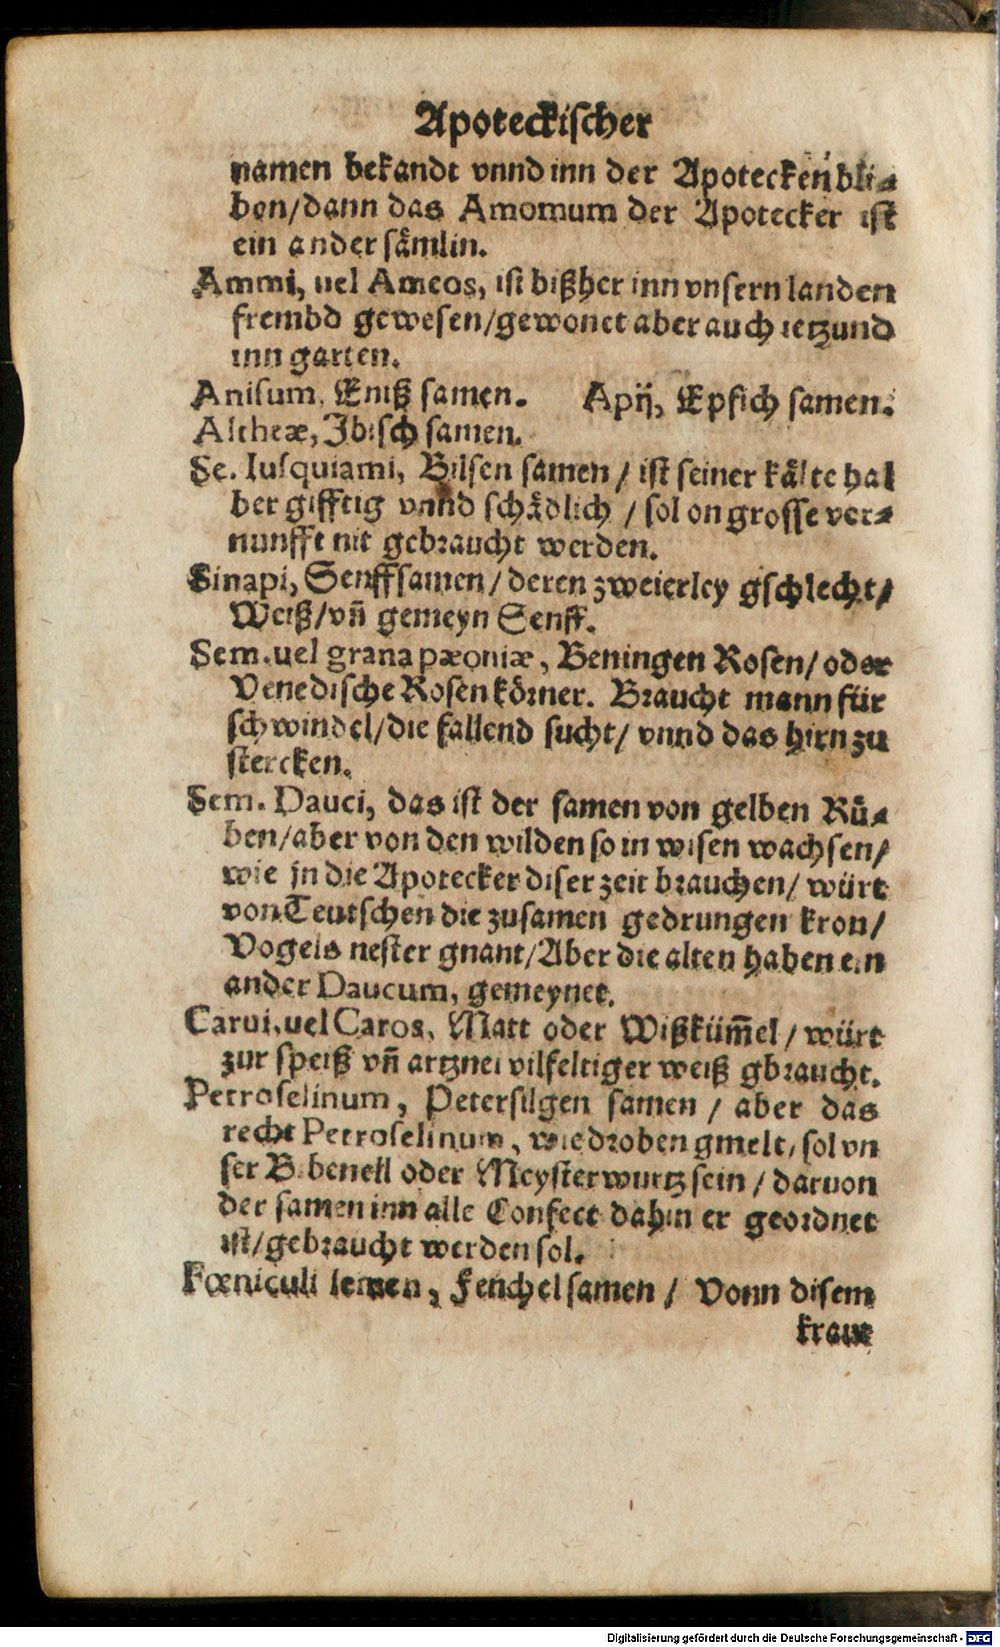 Apoteckischer
namen bekandt vnnd inn der Apotecken bli-
ben/dann das Amomum der Apotecker ist
ein ander sämlin.
Ammi, uel Ameos, ist bißher inn vnsern landen
frembd gewesen/gewonet aber auch ietzund
inn garten.
Anisum, Eniß samen. Apij, Epfich samen.
Altheæ, Ibisch samen.
Se. Iusquiami, Bilsen samen / ist seiner kälte hal
ber gifftig vnnd schädlich / sol on grosse ver-
nunfft nit gebraucht werden.
Sinapi, Senffsamen/ deren zweierley gschlecht/
Weiß/vn̄ gemeyn Senff.
Sem. uel grana pæoniæ, Beningen Rosen/ oder
Venedische Rosen körner. Braucht mann für
schwindel/die fallend sucht/ vnnd das hirn zu
stercken.
Sem. Dauci, das ist der samen von gelben Rü-
ben/aber von den wilden so in wisen wachsen/
wie jn die Apotecker diser zeit brauchen/ würt
von Teutschen die zusamen gedrungen kron/
Vogels nester gnant/Aber die alten haben ein
ander Daucum, gemeynet.
Carui, uel Caros, Matt oder Wißküm̄el / würt
zur speiß vn̄ artznei vilfeltiger weiß gbraucht.
Petroselinum, Petersilgen samen / aber das
recht Petroselinum, wie droben gmelt, sol vn
ser Bibenell oder Meysterwurtz sein / daruon
der samen inn alle Confect dahin er geordnet
ist/gebraucht werden sol.
Fœniculi semen, Fenchel samen / Vonn disem
kraut
Digitalisierung gefördert durch die Deutsche Forschungsgemeinschaft - DFG